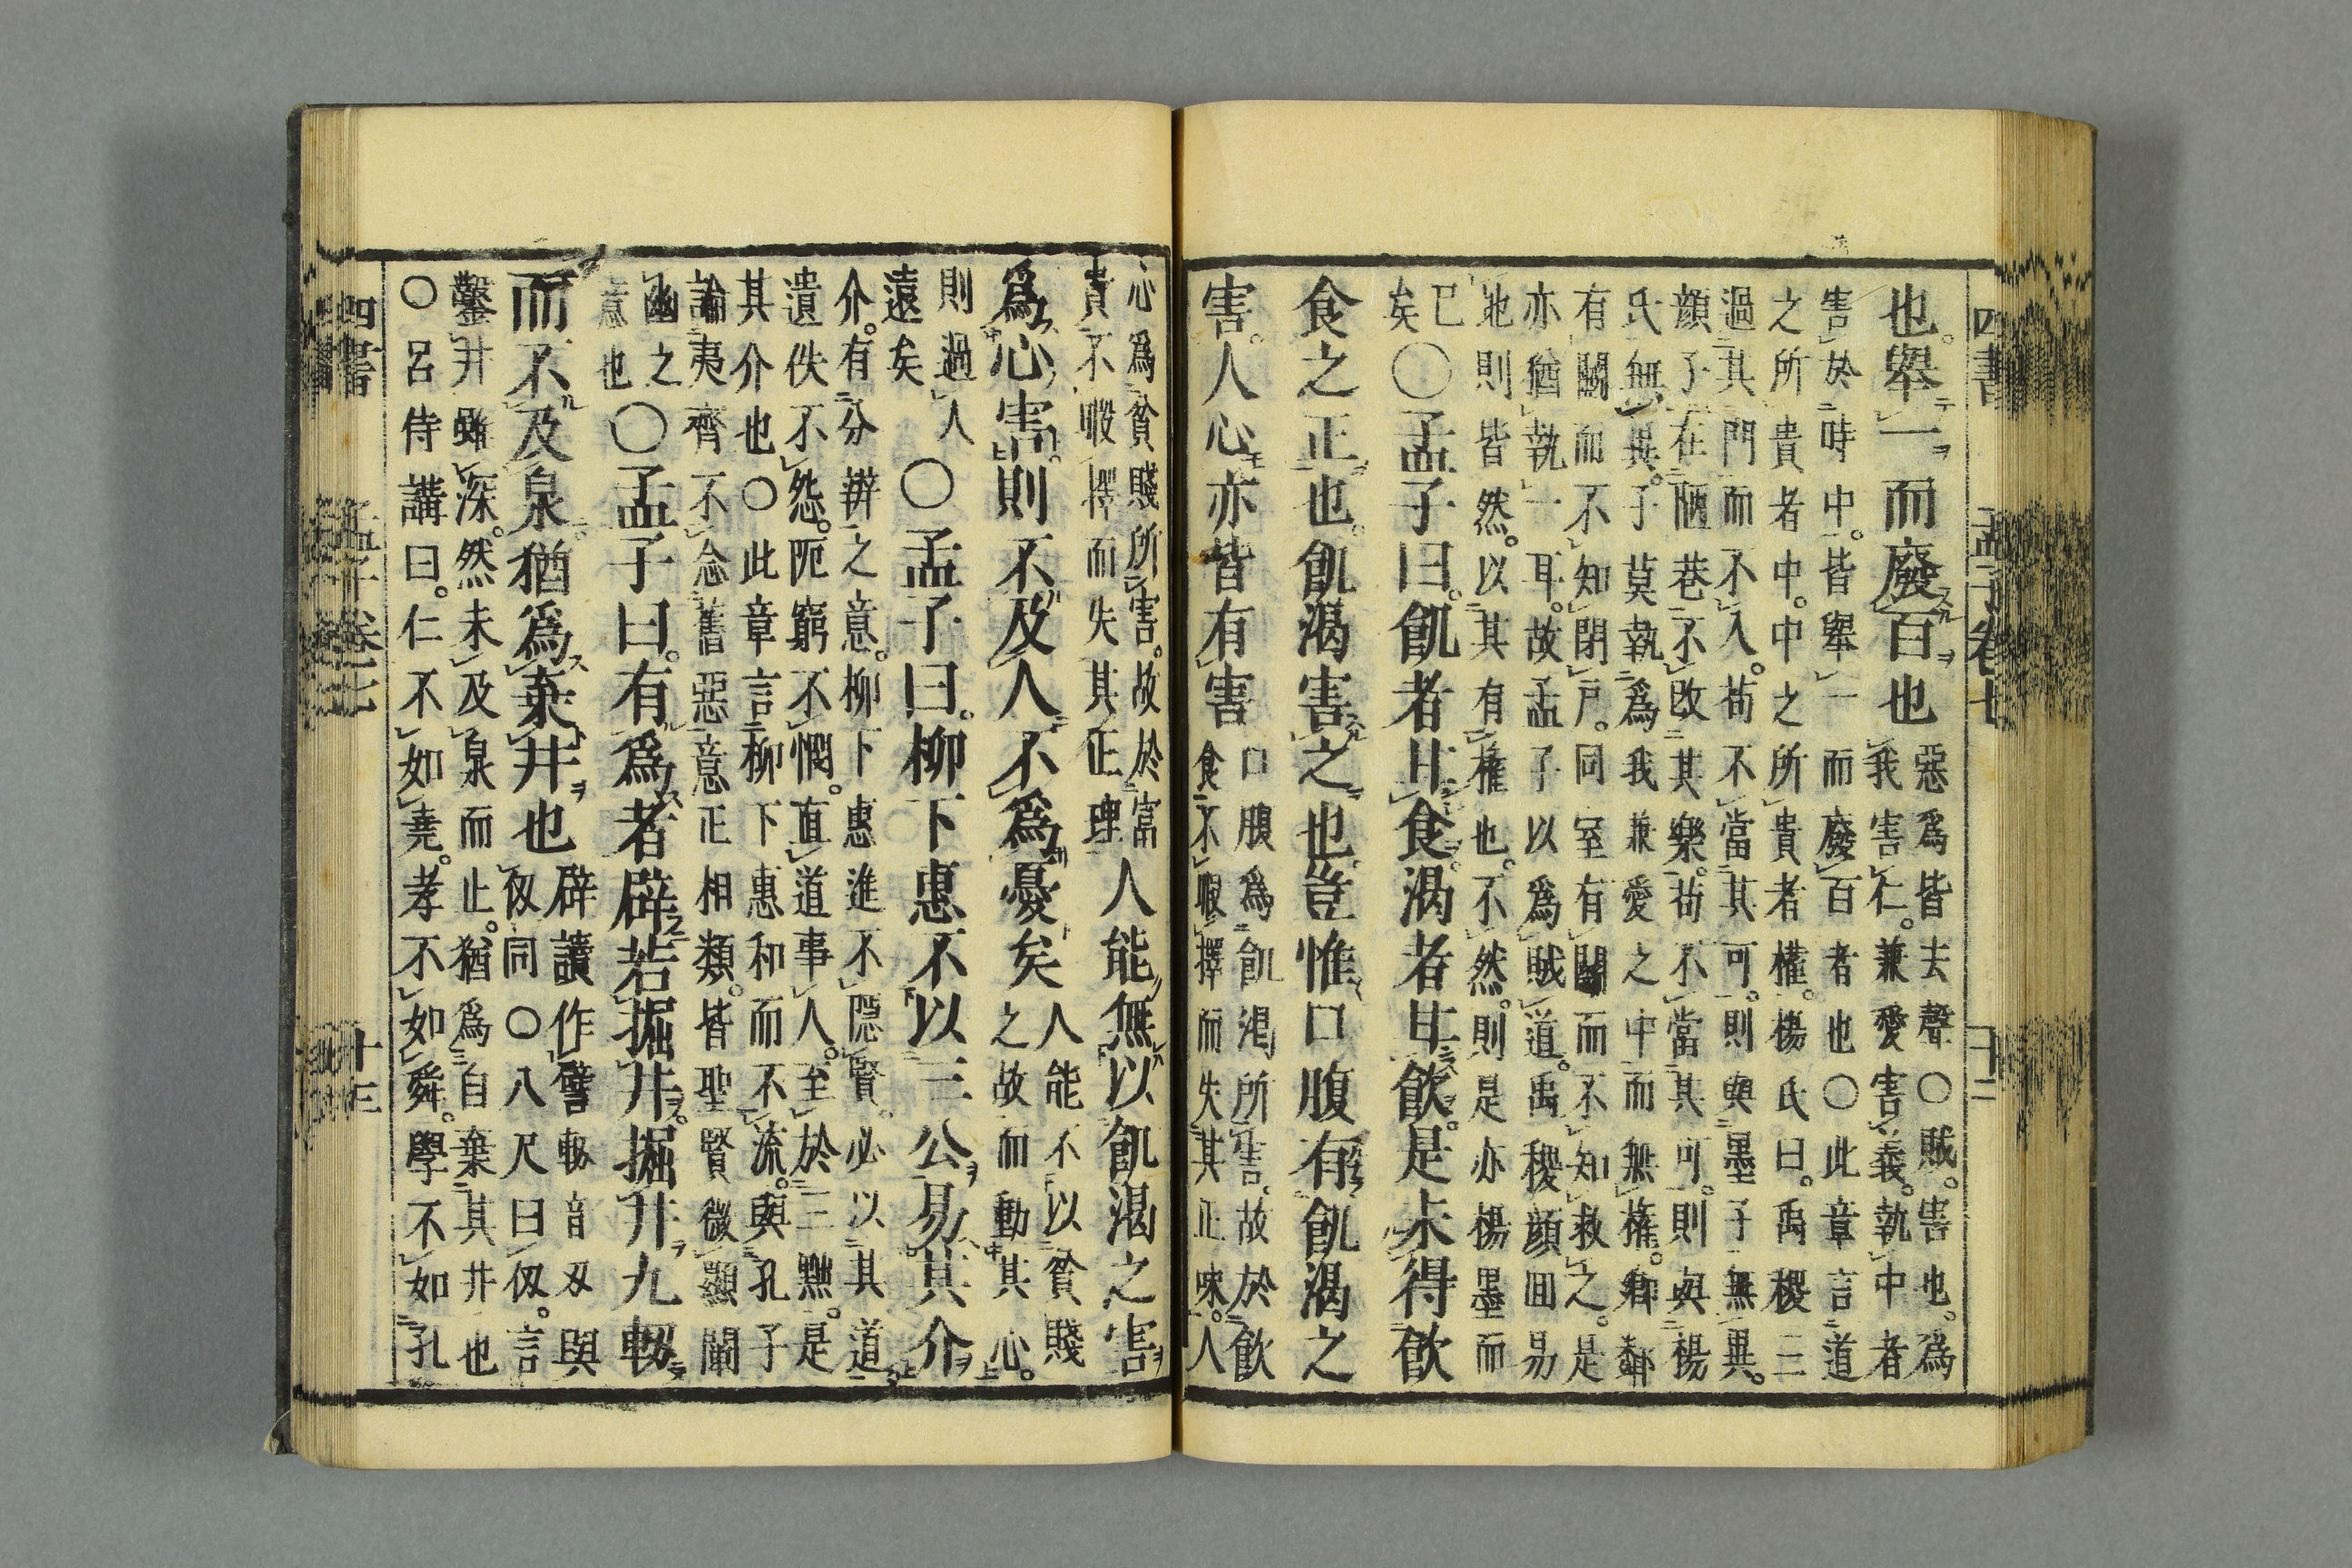 四書 孟子卷七 十二
也。舉一而廢百也
惡爲皆去聲○賊。害也。爲
我害仁。兼愛害義。執中者
害於時中。皆舉一而廢百者也○此章言道
之所貴者中。中之所貴者權。楊氏曰。禹稷三
過其門而不入。苟不當其可。則與墨子無異。
顏子在陋巷不改其樂。苟不當其可。則與楊
氏無異。子莫執爲我兼愛之中而無權。鄉鄰
有鬭而不知閉戶。同室有鬭而不知救之。是
亦猶執一耳。故孟子以爲賊道。禹稷顏回易
地則皆然。以其有權也。不然。則是亦楊墨而
已
矣
○孟子曰。飢者甘食。渴者甘飮。是未得飮
食之正也。飢渴害之也。豈惟口腹有飢渴之
害。人心亦皆有害
口腹爲飢渴所害。故於飮
食不暇擇而失其正味。人
心爲貧賤所害。故於富
貴不暇擇而失其正理
人能無以飢渴之害
爲心害。則不及人不爲憂矣
人能不以貧賤
之故而動其心。
則過人
遠矣
○孟子曰。柳下惠不以三公易其介
介。有分辨之意。柳下惠進不隱賢。必以其道。
遺佚不怨。阨窮不憫。直道事人。至於三黜。是
其介也○此章言柳下惠和而不流。與孔子
論夷齊不念舊惡意正相類。皆聖賢微顯闡
幽之
意也
○孟子曰。有爲者辟若掘井。掘井九軔
而不及泉。猶爲棄井也
辟讀作譬軔音刃與
仞同○八尺曰仞。言
鑿井雖深。然未及泉而止。猶爲自棄其井也
○呂侍講曰。仁不如堯。孝不如舜。學不如孔
四書 孟子卷七 十三